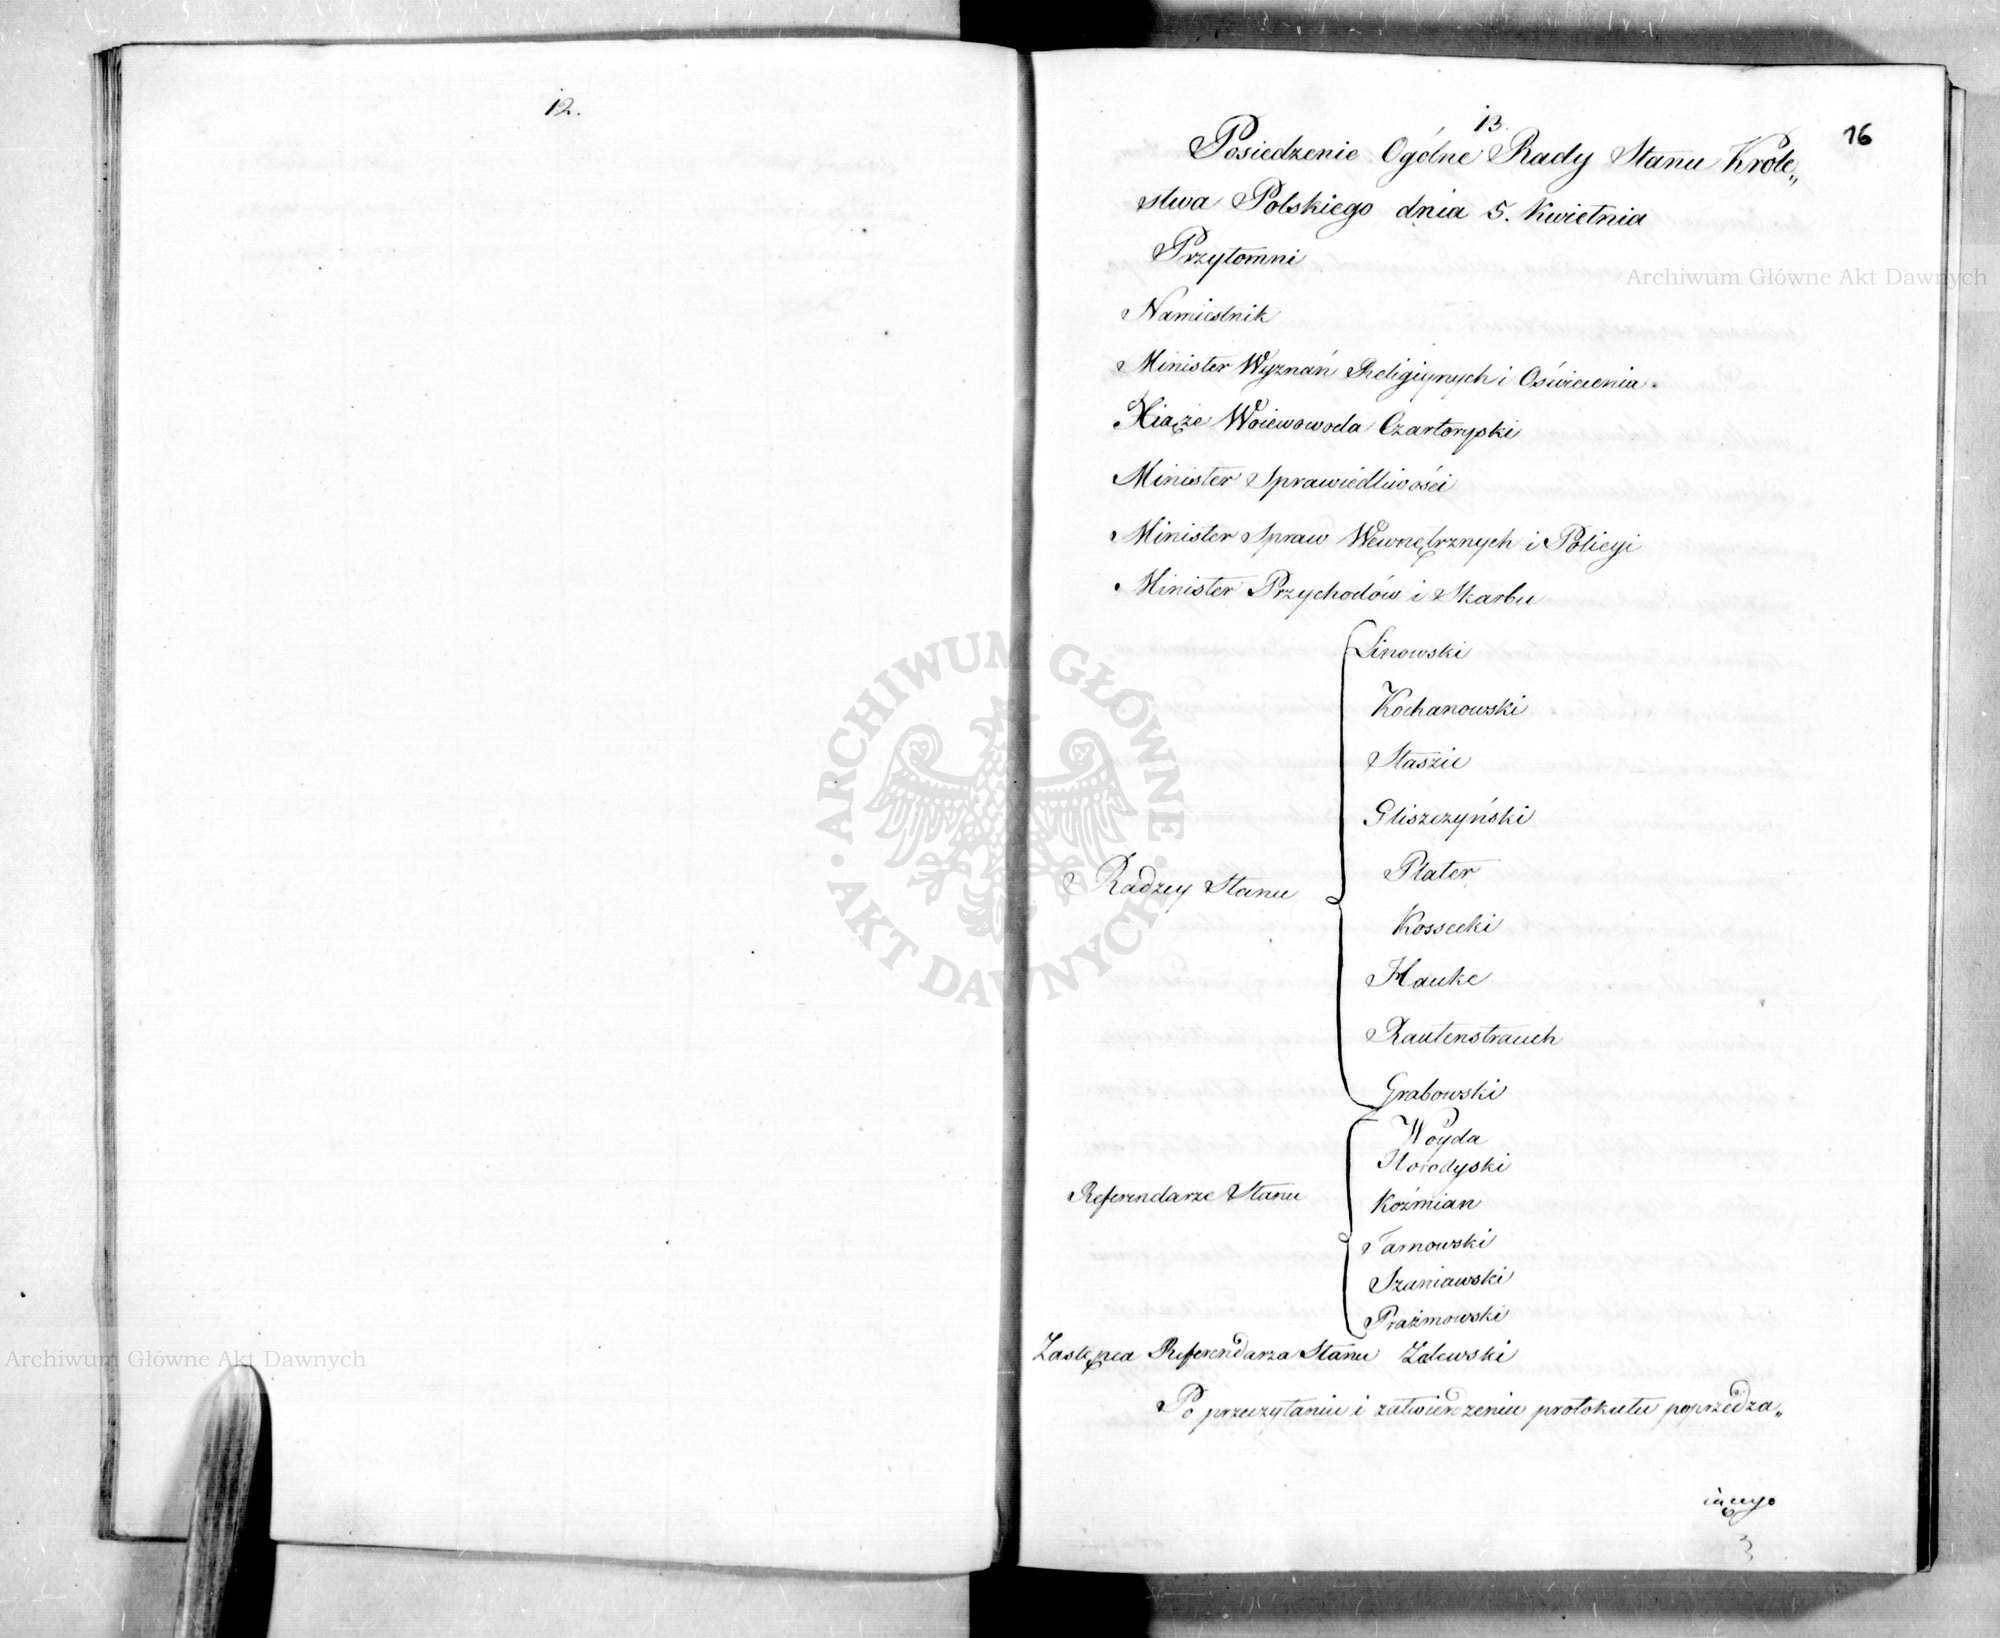 12.
13.
16
Posiedzenie Ogólne Rady Stanu Króle„
stwa Polskiego dnia 5. Kwietnia
Przytomni
Namiestnik
Minister Wyznań Religiynych i Oświecenia.
Xiąże Woiewowoda Czartoryski
Minister Sprawiedliwości
Minister Spraw Wewnętrznych i Policyi
Minister Przychodów i Skarbu
Linowski
Kochanowski
Staszic
Gliszczyński
Plater
Radzcy Stanu
Kossecki
Hauke
Rautenstrauch
Grabowski
Woyda
Horodyski
Referendarze Stanu
Koźmian
Tarnowski
Szaniawski
Prażmowski
Zastępca Referendarza Stanu Zalewski
Po przeczytaniu i zatwierdzeniu protokułu poprzedza„
iącego
3
Archiwum Główne Akt Dawnych
ARCHIWUM GŁÓWNE · AKT DAWNYCH ·
Archiwum Główne Akt Dawnych